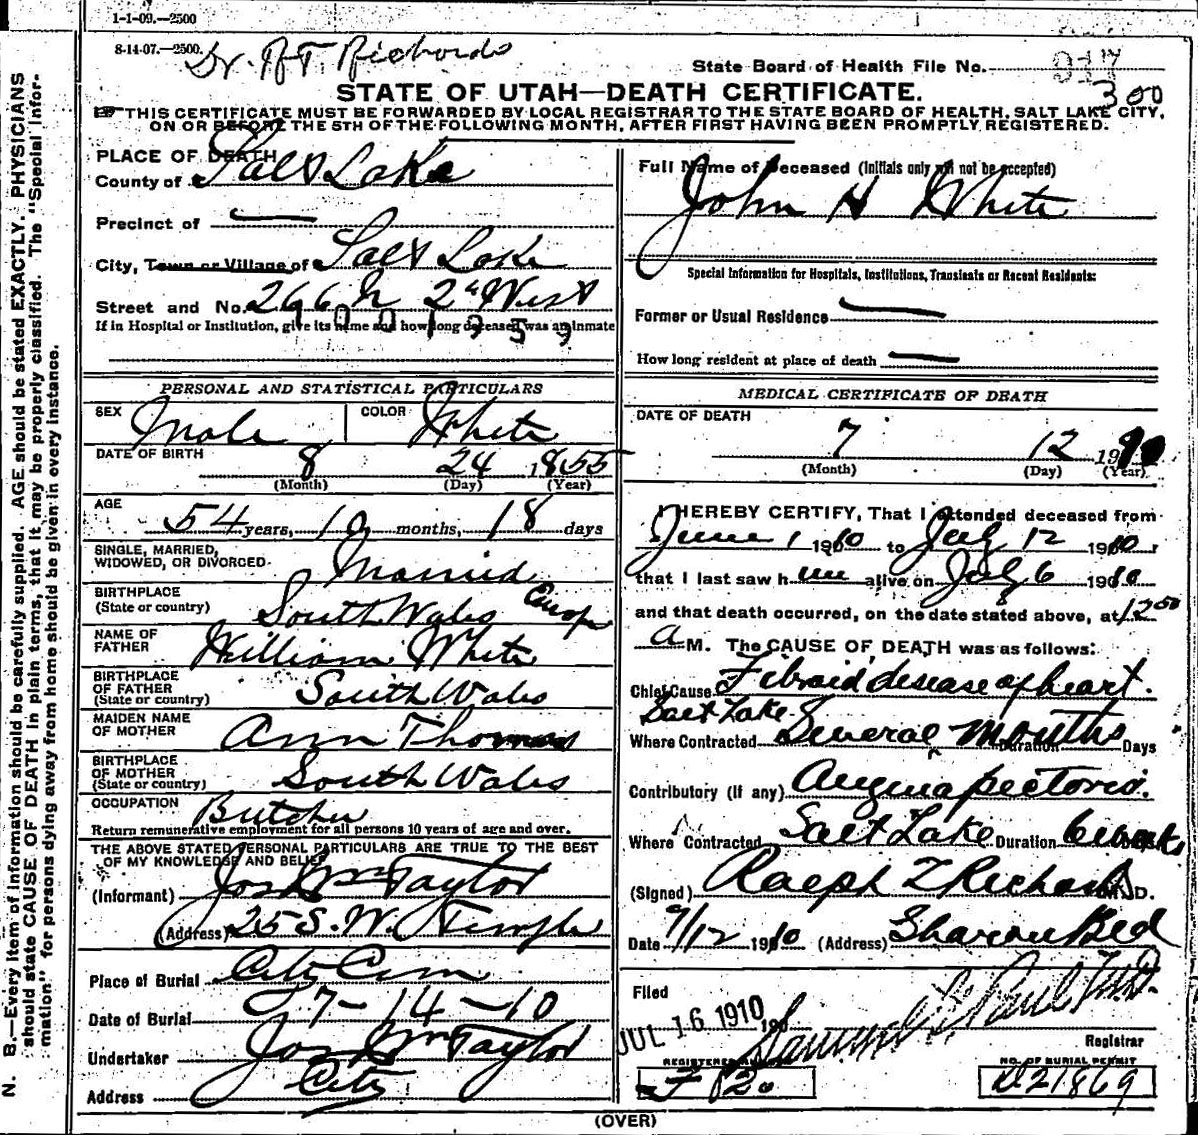 1-1-09.—2500
8-14-07.—2500.
Dr. R T. Richards
State Board of Health File No.
300
STATE OF UTAH—DEATH CERTIFICATE.
THIS CERTIFICATE MUST BE FORWARDED BY LOCAL REGISTRAR TO THE STATE BOARD OF HEALTH, SALT LAKE CITY,
ON OR BEFORE THE 5TH OF THE FOLLOWING MONTH, AFTER FIRST HAVING BEEN PROMPTLY REGISTERED.
N. B.—Every item of information should be carefully supplied. AGE should be stated EXACTLY. PHYSICIANS
should state CAUSE OF DEATH in plain terms, that it may be properly classified. The "Special Infor-
mation" for persons dying away from home should be given in every instance.
PLACE OF DEATH
County of Salt Lake
Precinct of —
City, Town or Village of Salt Lake
Street and No. 266 N 2d West
If in Hospital or Institution, give its name and how long deceased was an inmate
PERSONAL AND STATISTICAL PARTICULARS
SEX Male COLOR White
DATE OF BIRTH 8 24 1855
(Month) (Day) (Year)
AGE 54 years, 10 months, 18 days
SINGLE, MARRIED,
WIDOWED, OR DIVORCED Married
BIRTHPLACE
(State or country) South Wales Europe
NAME OF
FATHER William White
BIRTHPLACE
OF FATHER
(State or country) South Wales
MAIDEN NAME
OF MOTHER Ann Thomas
BIRTHPLACE
OF MOTHER
(State or country) South Wales
OCCUPATION Butcher
Return remunerative employment for all persons 10 years of age and over.
THE ABOVE STATED PERSONAL PARTICULARS ARE TRUE TO THE BEST
OF MY KNOWLEDGE AND BELIEF
(Informant) Jos Wm Taylor
(Address) 25 S. W. Temple
Place of Burial City Cem
Date of Burial 7-14-10
Undertaker Jos Wm Taylor
Address City
Full Name of Deceased (Initials only will not be accepted)
John H White
Special Information for Hospitals, Institutions, Transients or Recent Residents:
Former or Usual Residence —
How long resident at place of death —
MEDICAL CERTIFICATE OF DEATH
DATE OF DEATH
7 12 1910
(Month) (Day) (Year)
I HEREBY CERTIFY, That I attended deceased from
June 1 1910 to July 12 1910,
that I last saw him alive on July 6 1910
and that death occurred, on the date stated above, at 12 50
a M. The CAUSE OF DEATH was as follows:
Chief Cause Fibroid disease of heart.
Salt Lake
Where Contracted Several Months Duration Days
Contributory (if any) Angina pectoris.
Where Contracted Salt Lake Duration 6 weeks
(Signed) Ralph T Richards M. D.
Date 7/12 1910 (Address) Sharon Bld
Filed
JUL 16 1910 190
Samuel G Paul M.D.
Registrar
REGISTERED
NO. OF BURIAL PERMIT
D21869
(OVER)